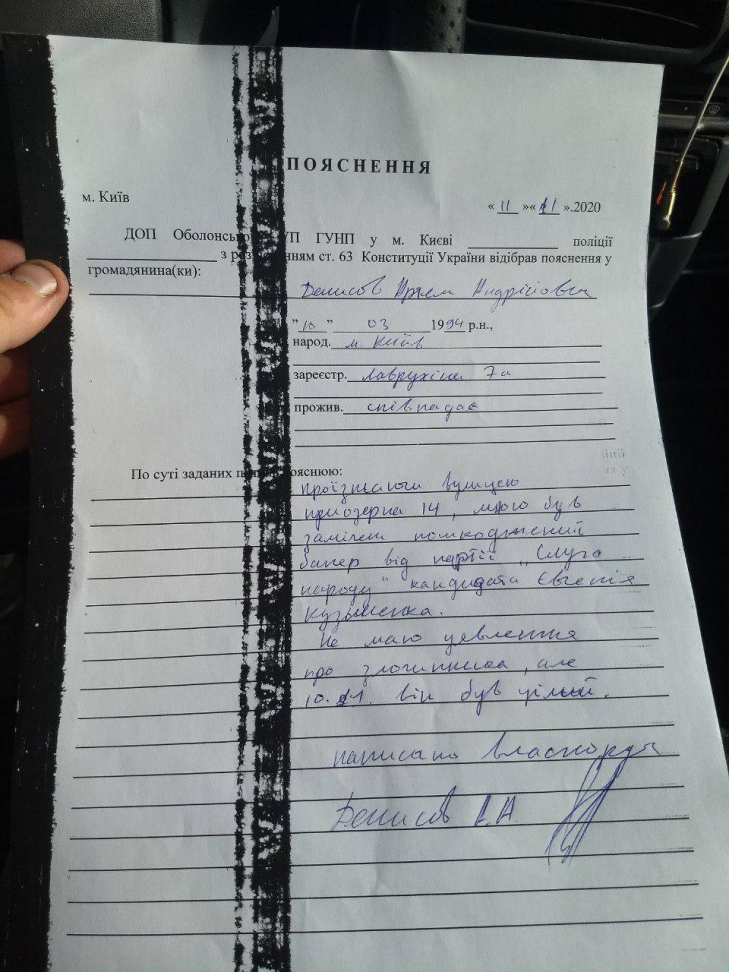 ПОЯСНЕННЯ
м. Київ
« 11 »« 11 ».2020
ДОП Оболонсько УП ГУНП у м. Києві поліції
з роз ням ст. 63 Конституції України відібрав пояснення у
громадянина(ки):
Денисов Артем Андрійович
"10" 03 1994 р.н.,
народ. м. Київ
зареєстр. Лаврухіна 7а
прожив. співпадає
По суті заданих п ояснюю:
проїзжаючи вулицею
приозерна 14, мною був
замічен пошкоджений
банер від партії „Слуга
народу" кандидата Євгенія
Кузьменка.
Не маю уявлення
про злочинника, але
10.11. він був цілий.
написано власноруч
Денисов А.А.